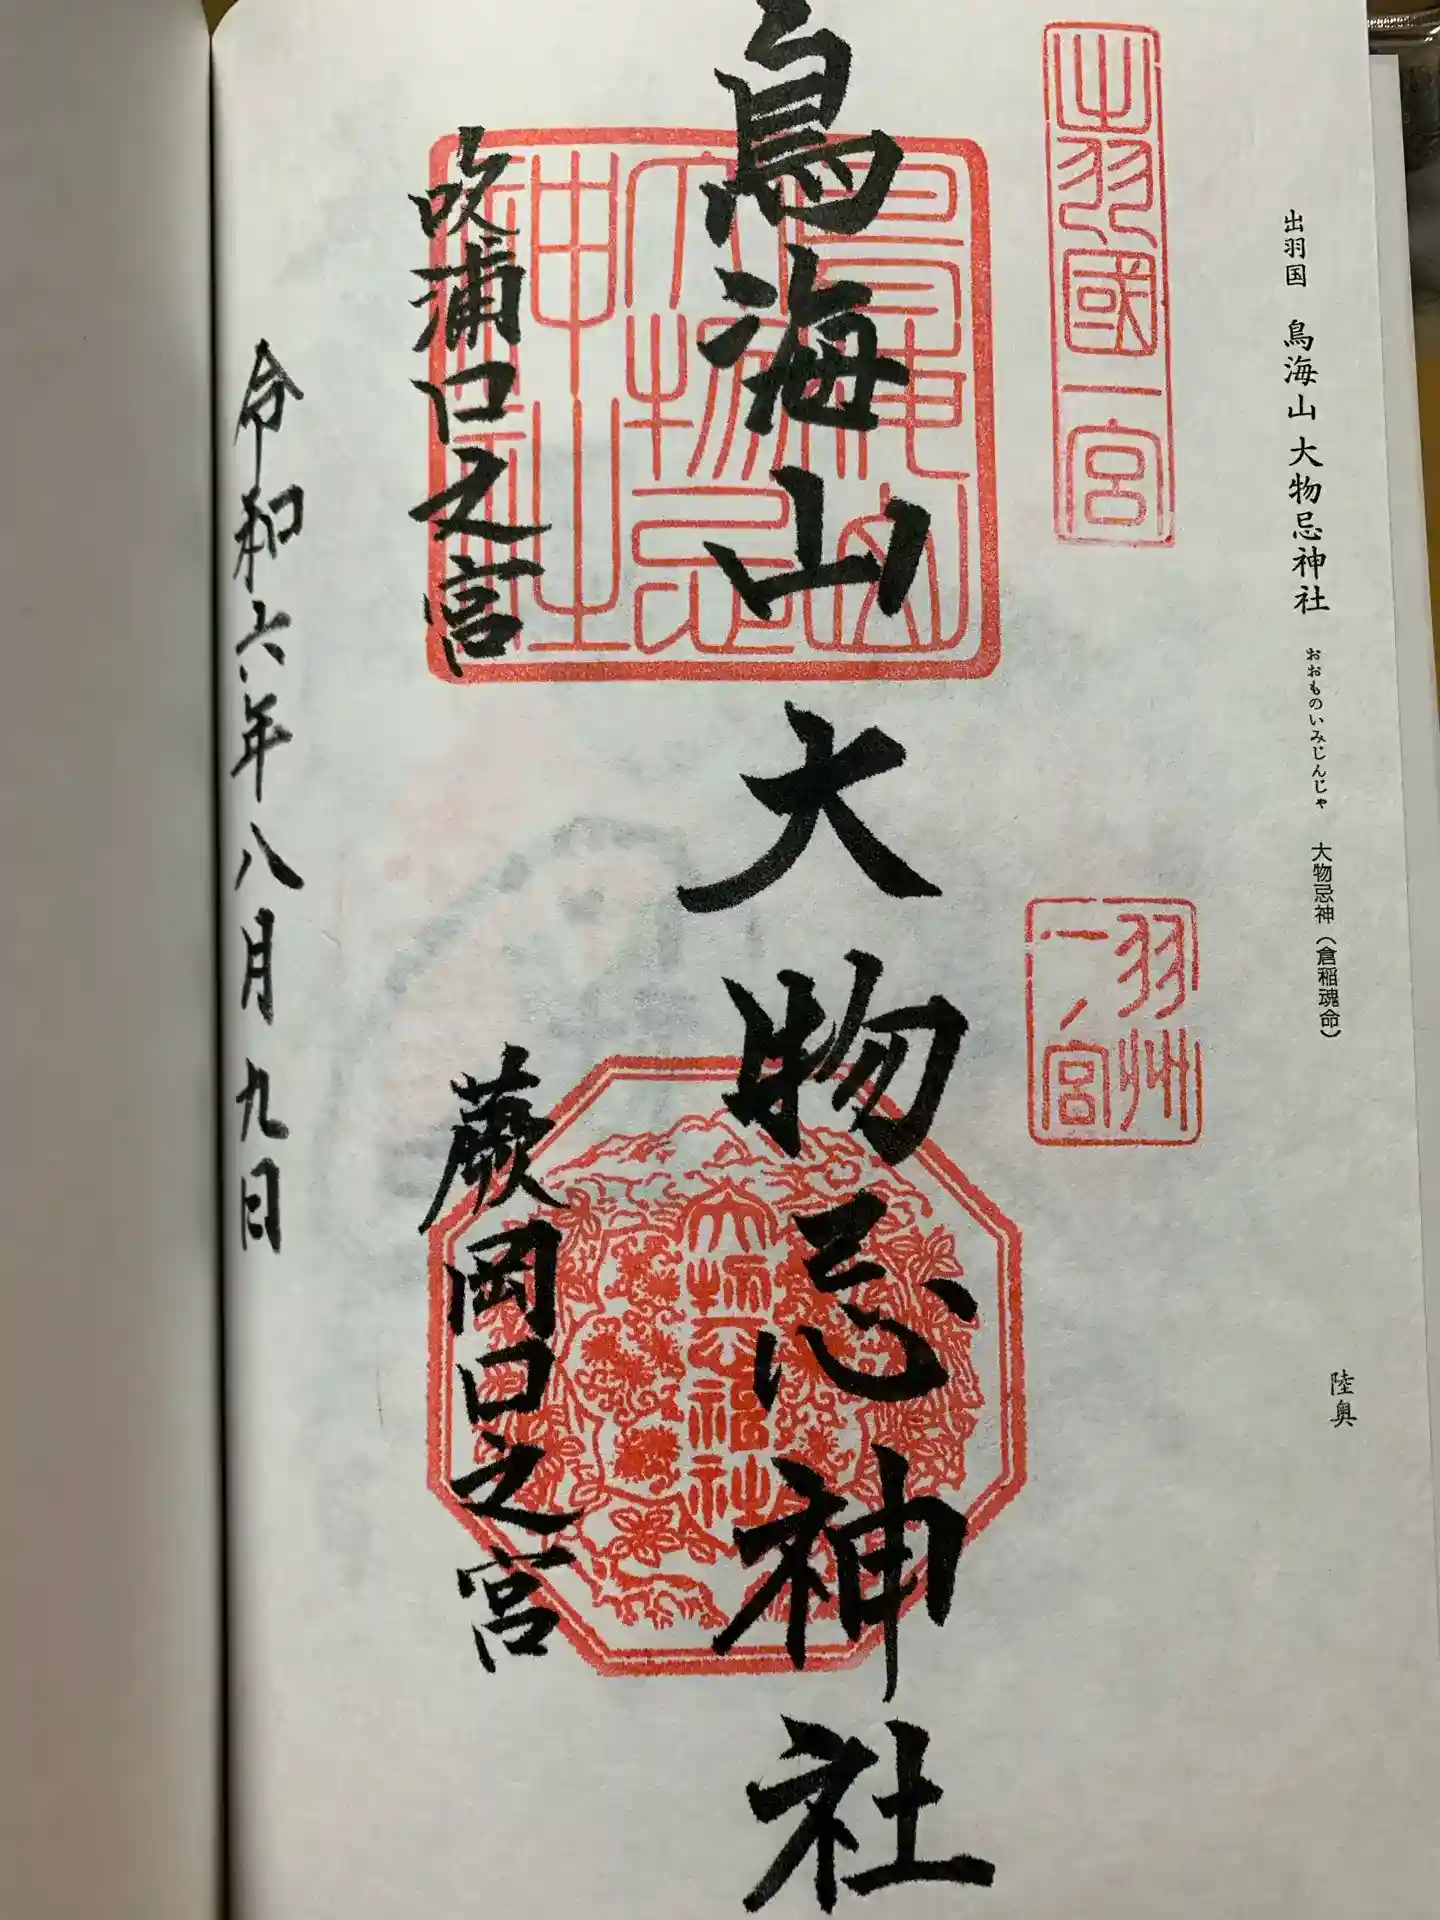 出羽国 鳥海山大物忌神社 おおものいみじんじゃ 大物忌神（倉稲魂命）
陸奥
出羽國一宮
羽州
一ノ宮
鳥海山大物忌神社
鳥海山
大物忌
神社
大物忌神社
吹浦口之宮
蕨岡口之宮
令和六年八月九日